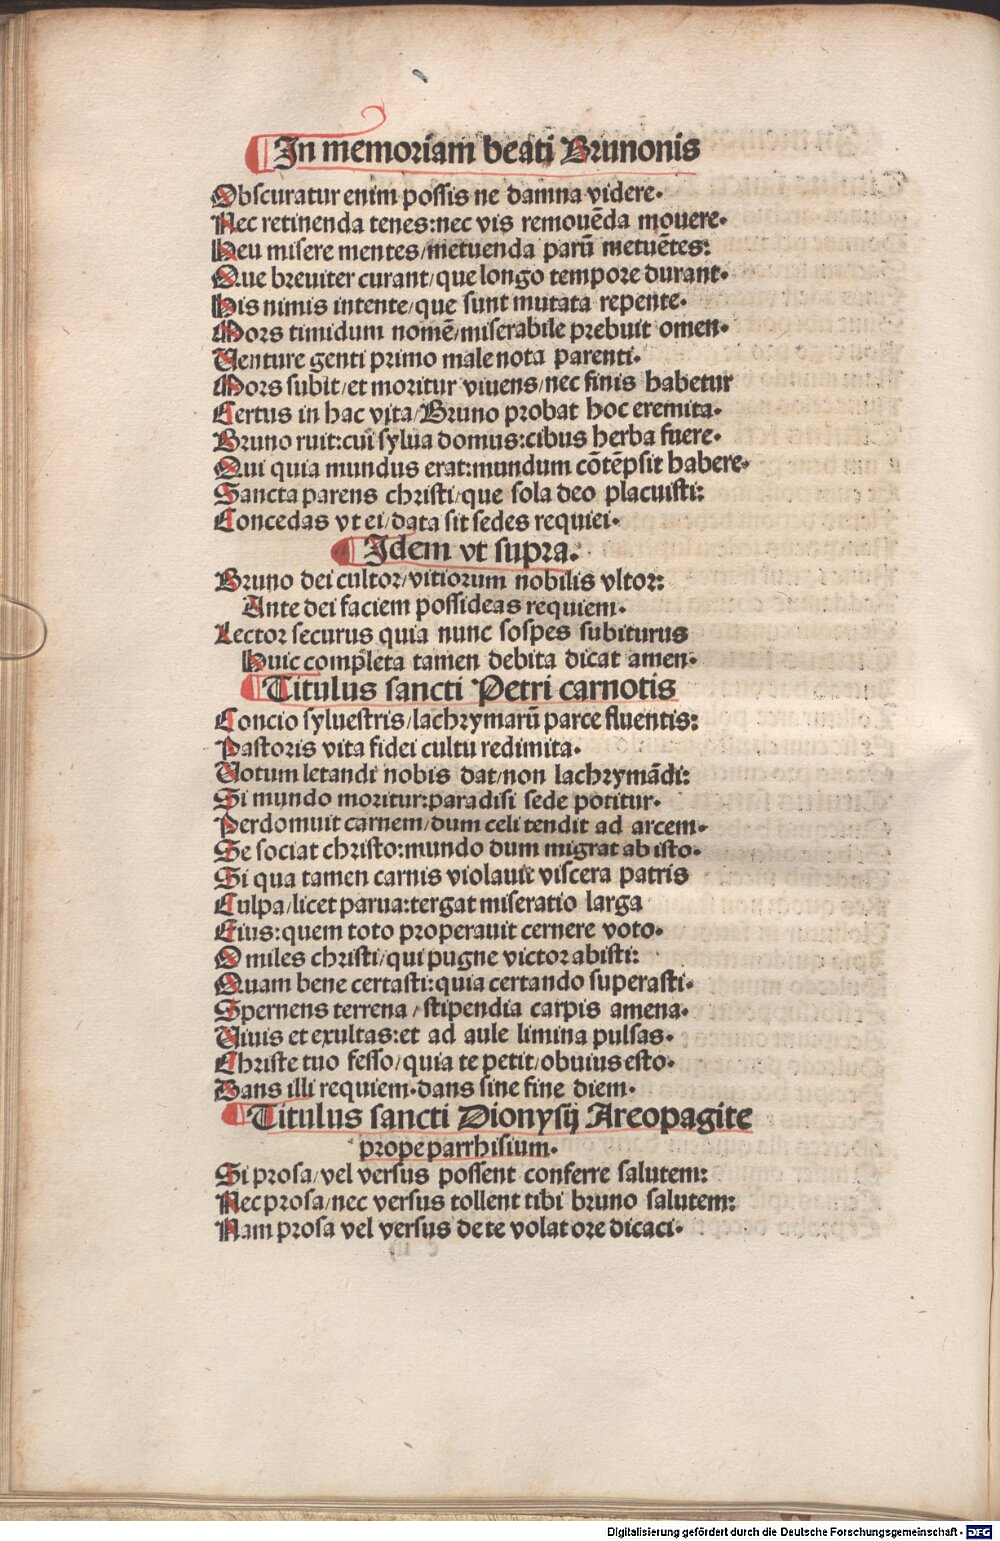 In memoriam beati Brunonis
Obscuratur enim possis ne damna videre.
Nec retinenda tenes:nec vis remouēda mouere.
Heu misere mentes/metuenda parū metuētes:
Que breuiter curant/que longo tempore durant.
His nimis intente/que sunt mutata repente.
Mors timidum nomē/miserabile prebuit omen.
Venture genti primo male nota parenti.
Mors subit/et moritur viuens/nec finis habetur
Certus in hac vita/Bruno probat hoc eremita.
Bruno ruit:cui sylua domus:cibus herba fuere.
Qui quia mundus erat:mundum cōtēpsit habere.
Sancta parens christi/que sola deo placuisti:
Concedas vt ei/data sit sedes requiei.
Idem vt supra.
Bruno dei cultor/vitiorum nobilis vltor:
Ante dei faciem possideas requiem.
Lector securus quia nunc sospes subiturus
Huic completa tamen debita dicat amen.
Titulus sancti Petri carnotis
Concio syluestris/lachrymarū parce fluentis:
Pastoris vita fidei cultu redimita.
Votum letandi nobis dat/non lachrymādi:
Si mundo moritur:paradisi sede potitur.
Perdomuit carnem/dum celi tendit ad arcem.
Se sociat christo:mundo dum migrat ab isto.
Si qua tamen carnis violauit viscera patris
Culpa/licet parua:tergat miseratio larga
Eius:quem toto properauit cernere voto.
O miles christi/qui pugne victor abisti:
Quam bene certasti:quia certando superasti.
Spernens terrena/stipendia carpis amena.
Viuis et exultas:et ad aule limina pulsas.
Christe tuo fesso/quia te petit/obuius esto.
Dans illi requiem.dans sine fine diem.
Titulus sancti Dionysij Areopagite
prope parrhisium.
Si prosa/vel versus possent conferre salutem:
Nec prosa/nec versus tollent tibi bruno salutem:
Nam prosa vel versus de te volat ore dicaci.
Digitalisierung gefördert durch die Deutsche Forschungsgemeinschaft - DFG